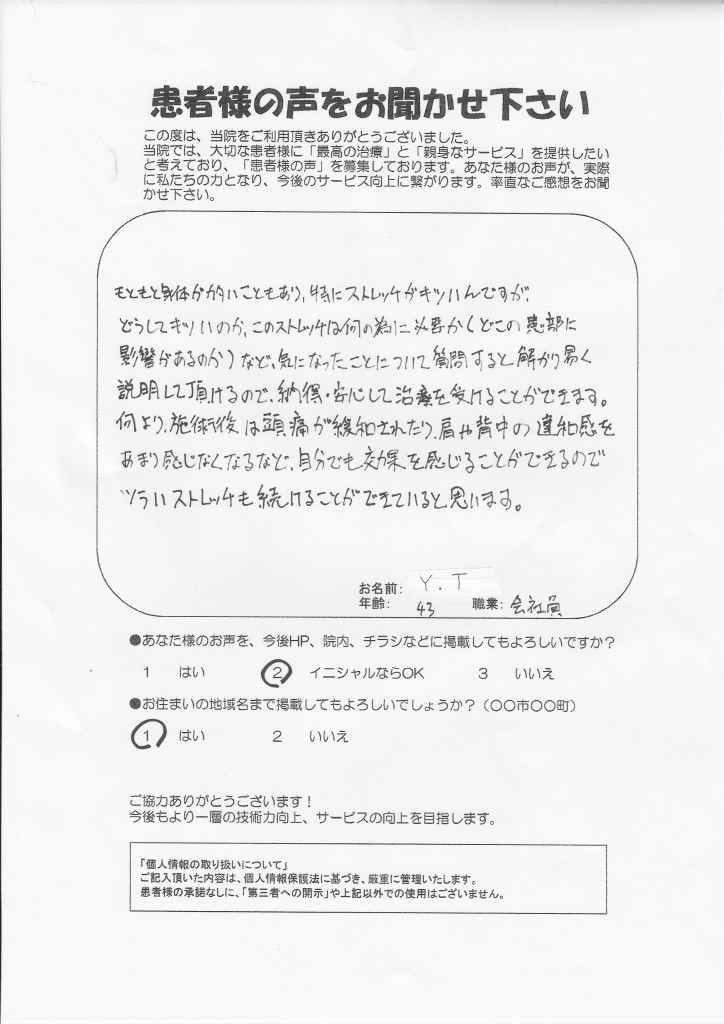 患者様の声をお聞かせ下さい
この度は、当院をご利用頂きありがとうございました。
当院では、大切な患者様に「最高の治療」と「親身なサービス」を提供したい
と考えており、「患者様の声」を募集しております。あなた様のお声が、実際
に私たちの力となり、今後のサービス向上に繋がります。率直なご感想をお聞
かせ下さい。
もともと身体がかたいこともあり、特にストレッチがキツいんですが、
どうしてキツいのか、このストレッチは何の為に必要か(どこの患部に
影響があるのか)など、気になったことについて質問すると解かり易く
説明して頂けるので、納得・安心して治療を受けることができます。
何より、施術後は頭痛が緩和されたり、肩や背中の違和感を
あまり感じなくなるなど、自分でも効果を感じることができるので
ツらいストレッチも続けることができていると思います。
お名前: Y.T
年齢: 43 職業: 会社員
●あなた様のお声を、今後HP、院内、チラシなどに掲載してもよろしいですか?
1 はい 2 イニシャルならOK 3 いいえ
●お住まいの地域名まで掲載してもよろしいでしょうか?(〇〇市〇〇町)
1 はい 2 いいえ
ご協力ありがとうございます!
今後もより一層の技術力向上、サービスの向上を目指します。
「個人情報の取り扱いについて」
ご記入頂いた内容は、個人情報保護法に基づき、厳重に管理いたします。
患者様の承諾なしに、「第三者への開示」や上記以外での使用はございません。